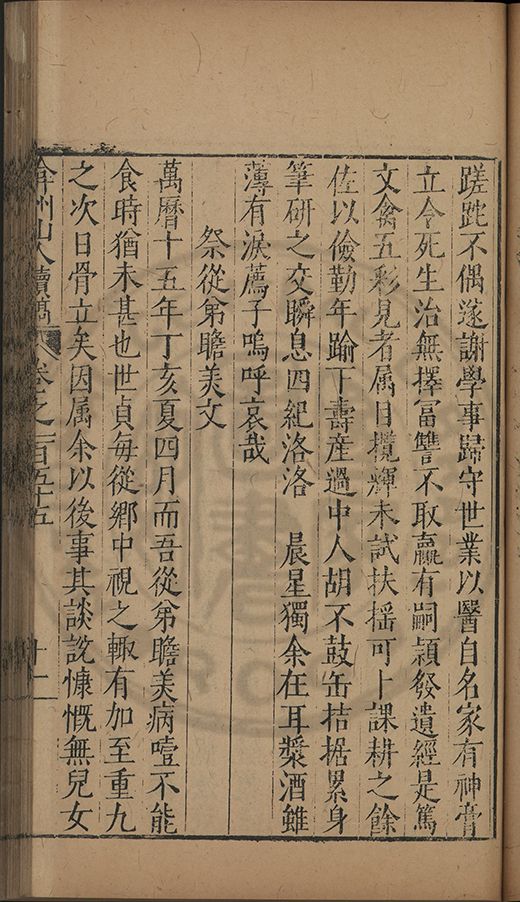 蹉跎不偶遂謝學事歸守世業以醫自名家有神膏
立令死生治無擇富讐不取贏有嗣頴發遺經是篤
文禽五彩見者属目攬輝未試扶摇可卜課耕之餘
佐以儉勤年踰下壽産過中人胡不鼓缶拮据累身
筆研之交瞬息四紀洛洛 晨星獨余在耳漿酒雖
薄有淚薦子嗚呼哀哉
祭從弟瞻美文
萬曆十五年丁亥夏四月而吾從弟瞻美病噎不能
食時猶未甚也世貞每從鄉中視之輙有加至重九
之次日骨立矣因属余以後事其談說慷慨無兒女
弇州山人續稿 卷之一百五十五 十二